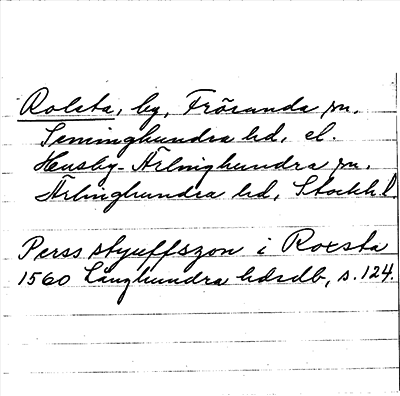 Rolsta, by, Frösunda sn.
Seminghundra hd, el.
Husby-Ärlinghundra sn.
Ärlinghundra hd, Stockh. l.
Perss styuffszon i Rolsta
1560 Långhundra hdsdb, s. 124.